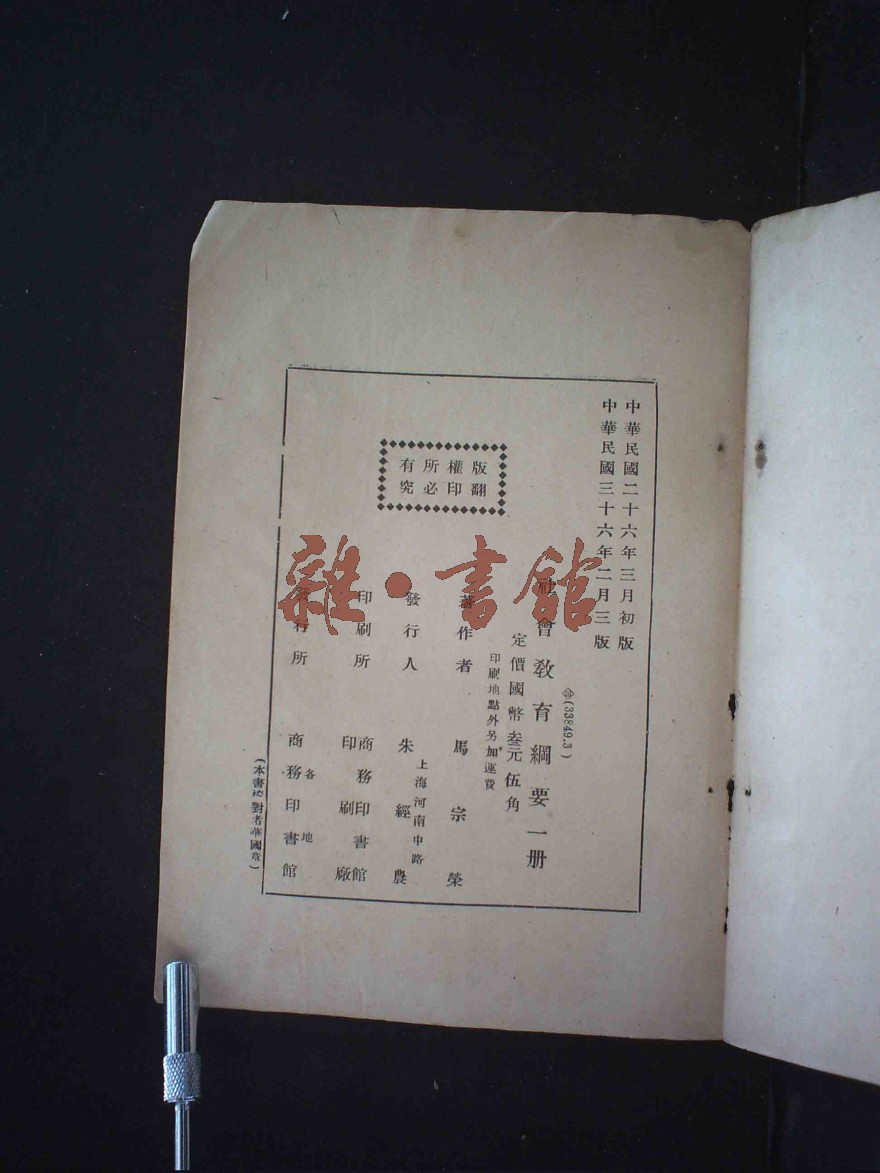 中華民國二十六年三月初版
中華民國三十六年二月三版
(33849.3)
社會教育綱要一册
定價國幣叁元伍角
印刷地點外另加運費
著作者 馬宗榮
上海河南中路
發行人 朱經農
印刷所 商務印書館
印刷廠
各地
發行所 商務印書館
版權所有
翻印必究
(本書校對者華國章)
雜·書館